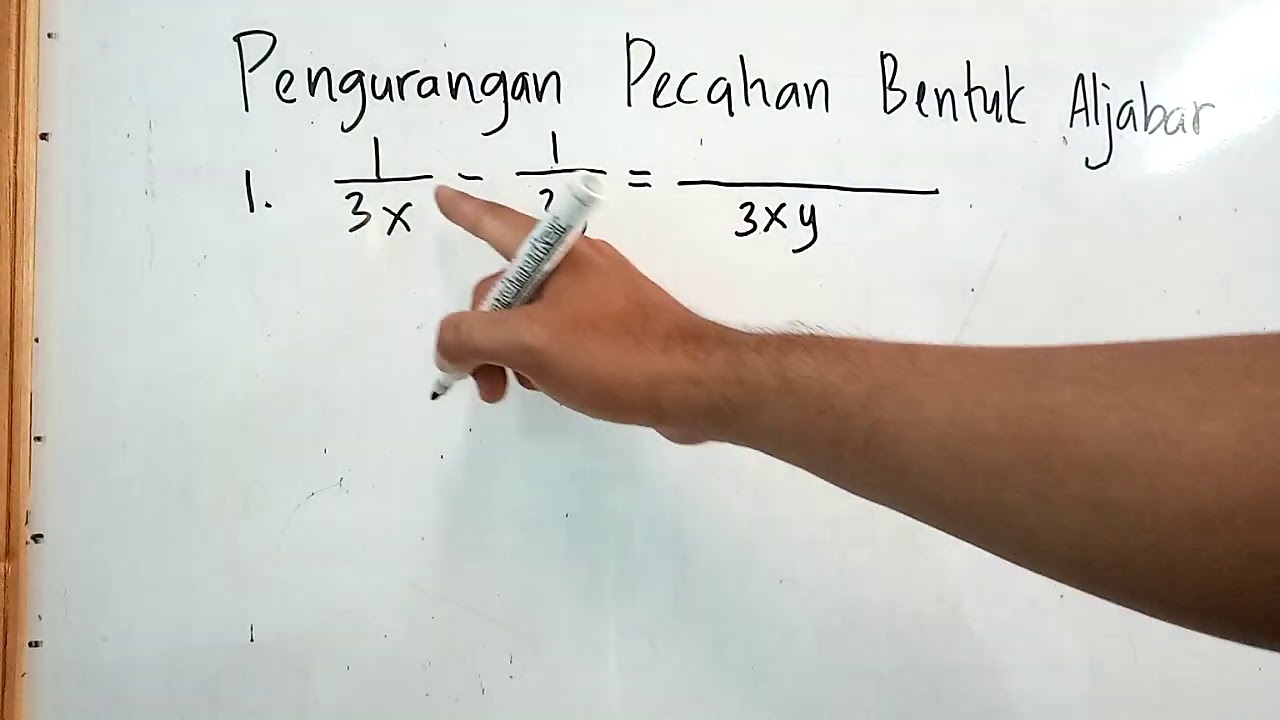 Pengurangan Pecahan Bentuk Aljabar
1. 1/3x - 1/ = /3xy